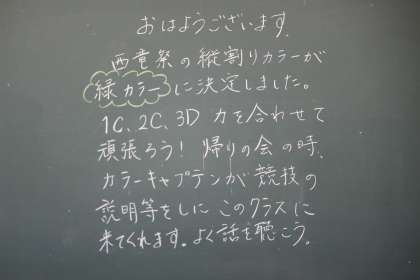 おはようございます。
西竜祭の縦割りカラーが
緑カラーに決定しました。
1C、2C、3D 力を合わせて
頑張ろう! 帰りの会の時、
カラーキャプテンが競技の
説明等をしにこのクラスに
来てくれます。よく話を聴こう。